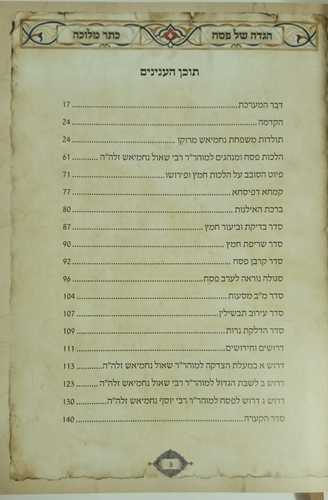 הגדה של פסח
כתר מלוכה
תוכן הענינים
דבר המערכת 17
הקדמה 24
תולדות משפחת נחמיאש מרוקו 24
הלכות פסח ומנהגים למוהר"ר רבי שאול נחמיאש זלה"ה 61
פיוט הסובב על הלכות חמץ ופירושו 71
קמחא דפיסחא 77
ברכת האילנות 80
סדר בדיקת וביעור חמץ 87
סדר שריפת חמץ 90
סדר קרבן פסח 92
סגולה נוראה לערב פסח 96
סדר מ"ב מסעות 104
סדר עירוב תבשילין 107
סדר הדלקת נרות 109
דרושים וחידושים 111
דרוש א במעלת הצדקה למוהר"ר שאול נחמיאש זלה"ה 113
דרוש ב לשבת הגדול למוהר"ר רבי שאול נחמיאש זלה"ה 123
דרוש ג דרוש לפסח למוהר"ר רבי יוסף נחמיאש זלה"ה 130
סדר הקערה 140
3